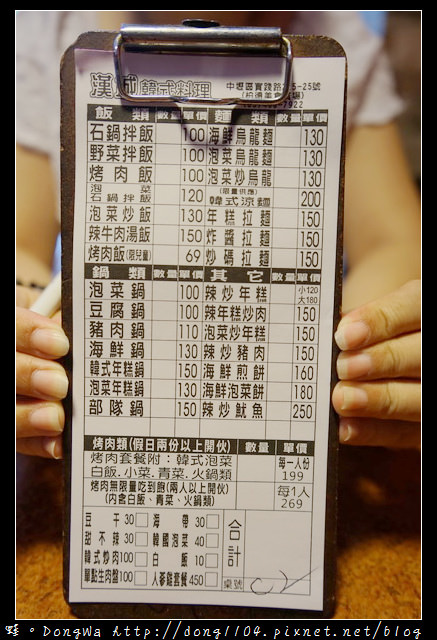 漢城 韓式料理
中壢區實踐路 5-25號
飯類 數量 單價 麵類 數量 單價
石鍋拌飯 100 海鮮烏龍麵 130
野菜拌飯 100 泡菜烏龍麵 130
烤肉飯 100 泡菜炒烏龍 130
泡菜石鍋拌飯 120 (限量供應)韓式涼麵 200
泡菜炒飯 130 年糕拉麵 150
辣牛肉湯飯 150 炸醬拉麵 150
烤肉飯(限兒童) 69 炒碼拉麵 150
鍋類 數量 單價 其它 數量 單價
泡菜鍋 100 辣炒年糕 小120 大180
豆腐鍋 100 辣年糕炒肉 150
豬肉鍋 110 泡菜炒年糕 150
海鮮鍋 130 辣炒豬肉 150
韓式年糕鍋 150 海鮮煎餅 160
泡菜年糕鍋 130 海鮮泡菜餅 180
部隊鍋 150 辣炒魷魚 250
烤肉類(假日兩份以上開伙) 數量 單價
烤肉套餐附:韓式泡菜 每一人份
白飯.小菜.青菜.火鍋類 199
烤肉無限量吃到飽(兩人以上開伙) 每1人
(內含白飯、青菜、火鍋類) 269
豆干30 海帶30 合計
甜不辣30 韓國泡菜40
韓式炒肉100 白飯10
單點生肉盤100 人蔘雞套餐450 桌號
蛙。DongWa Http://dong1104.pixnet.net/blog